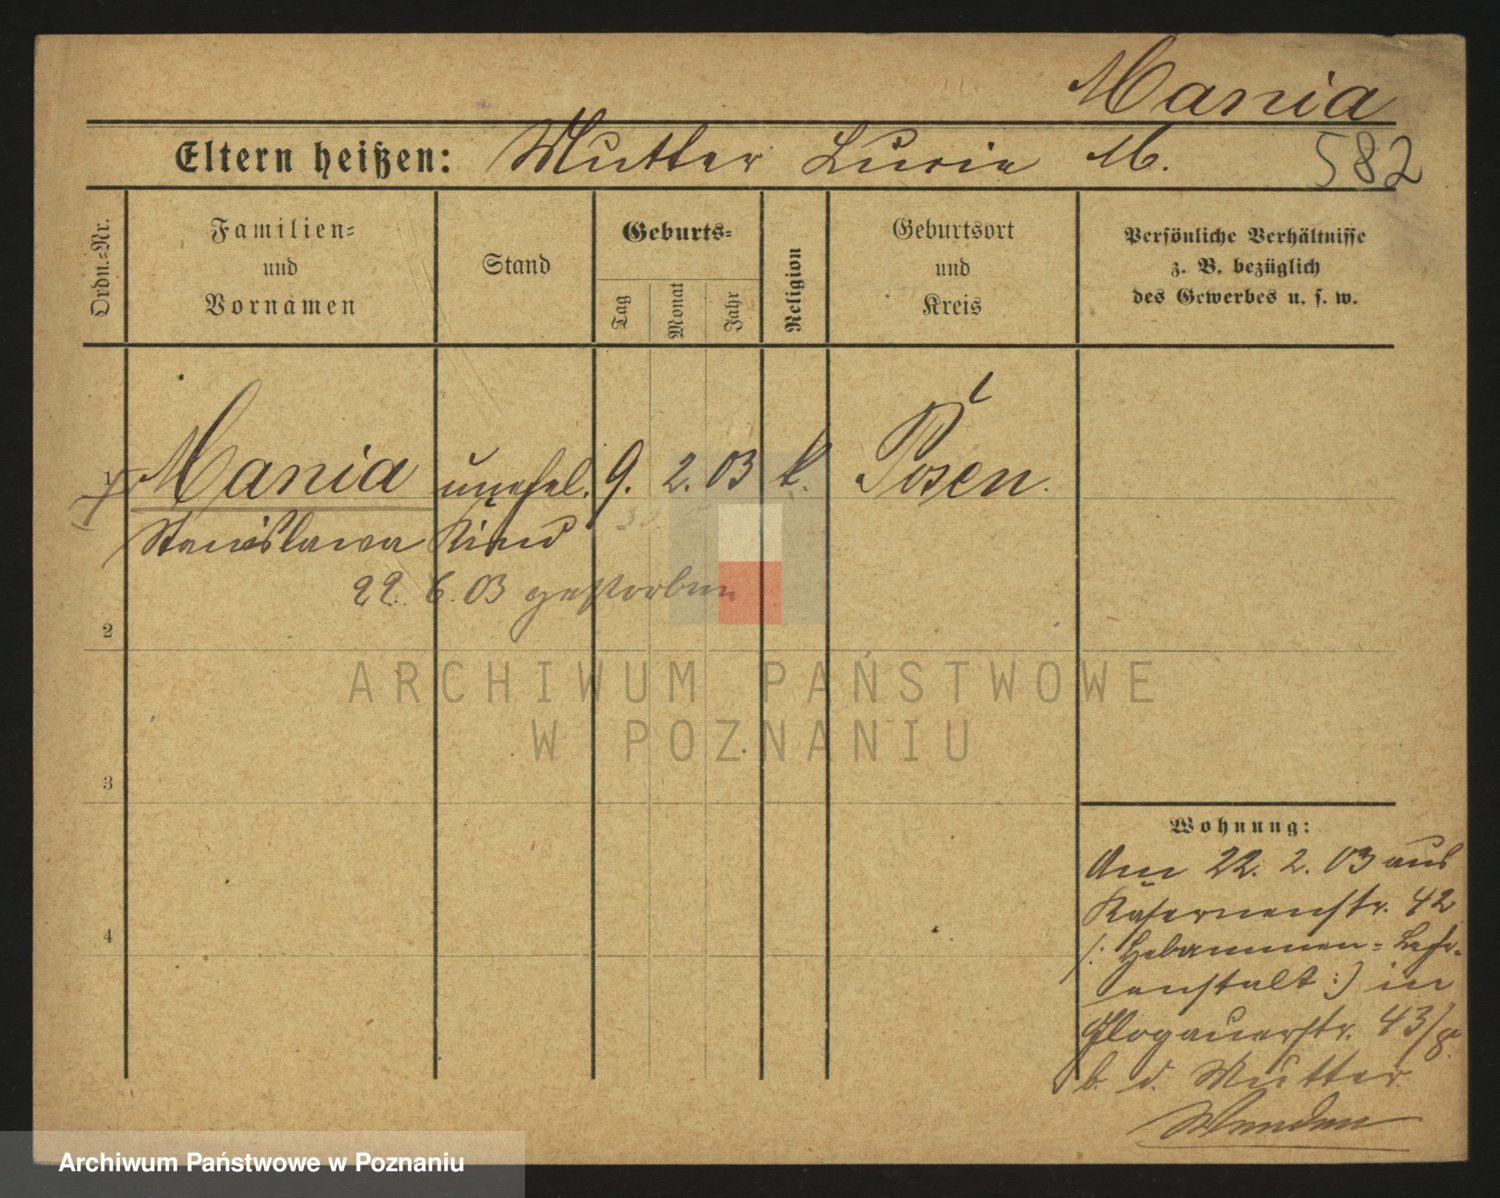 Mania
Eltern heißen: Mutter Lucie M.
582
Ordn.-Nr.
Familien-
und
Vornamen
Stand
Geburts-
Tag
Monat
Jahr
Religion
Geburtsort
und
Kreis
Persönliche Verhältnisse
z. B. bezüglich
des Gewerbes u. s. w.
1 Mania unehel. 9. 2. 03 k. Posen.
Stanislawa Kind
22. 6. 03 gestorben
2
ARCHIWUM PAŃSTWOWE
W POZNANIU
3
Wohnung:
Am 22. 2. 03 aus
Kasernenstr. 42
4
/: Hebammen-Lehr-
anstalt :/ in
Glogauerstr. 43/
b. d. Mutter
Archiwum Państwowe w Poznaniu